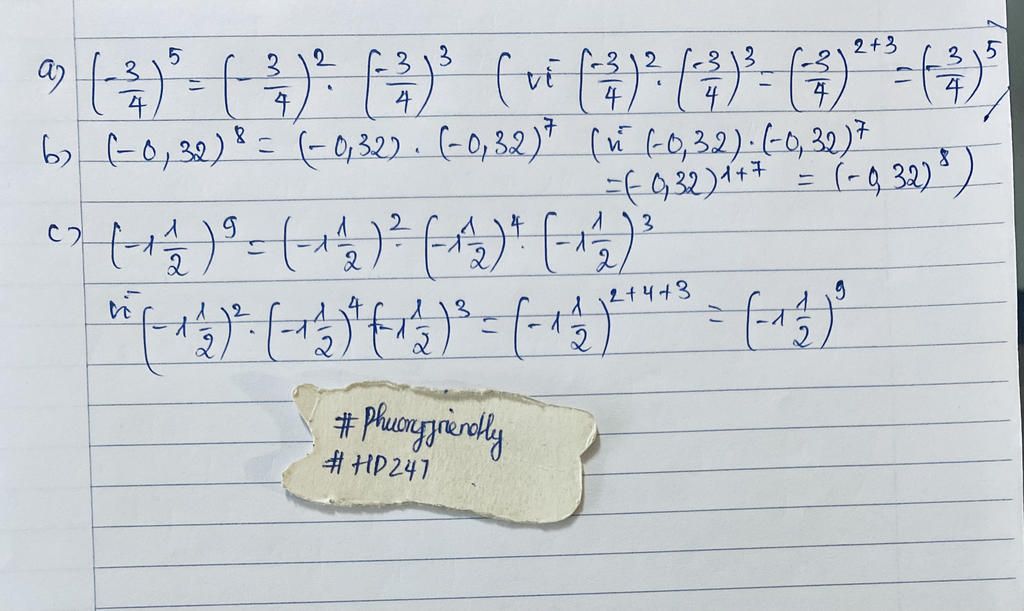 a) (-3/4)^5 = (-3/4)^2 . (-3/4)^3 (vì (-3/4)^2 . (-3/4)^3 = (-3/4)^{2+3} = (-3/4)^5
b) (-0,32)^8 = (-0,32) . (-0,32)^7 (vì (-0,32) . (-0,32)^7
= (-0,32)^{1+7} = (-0,32)^8)
c) (-1 1/2)^9 = (-1 1/2)^2 . (-1 1/2)^4 . (-1 1/2)^3
vì (-1 1/2)^2 . (-1 1/2)^4 (-1 1/2)^3 = (-1 1/2)^{2+4+3} = (-1 1/2)^9
# Phuongfriendly
# HD247